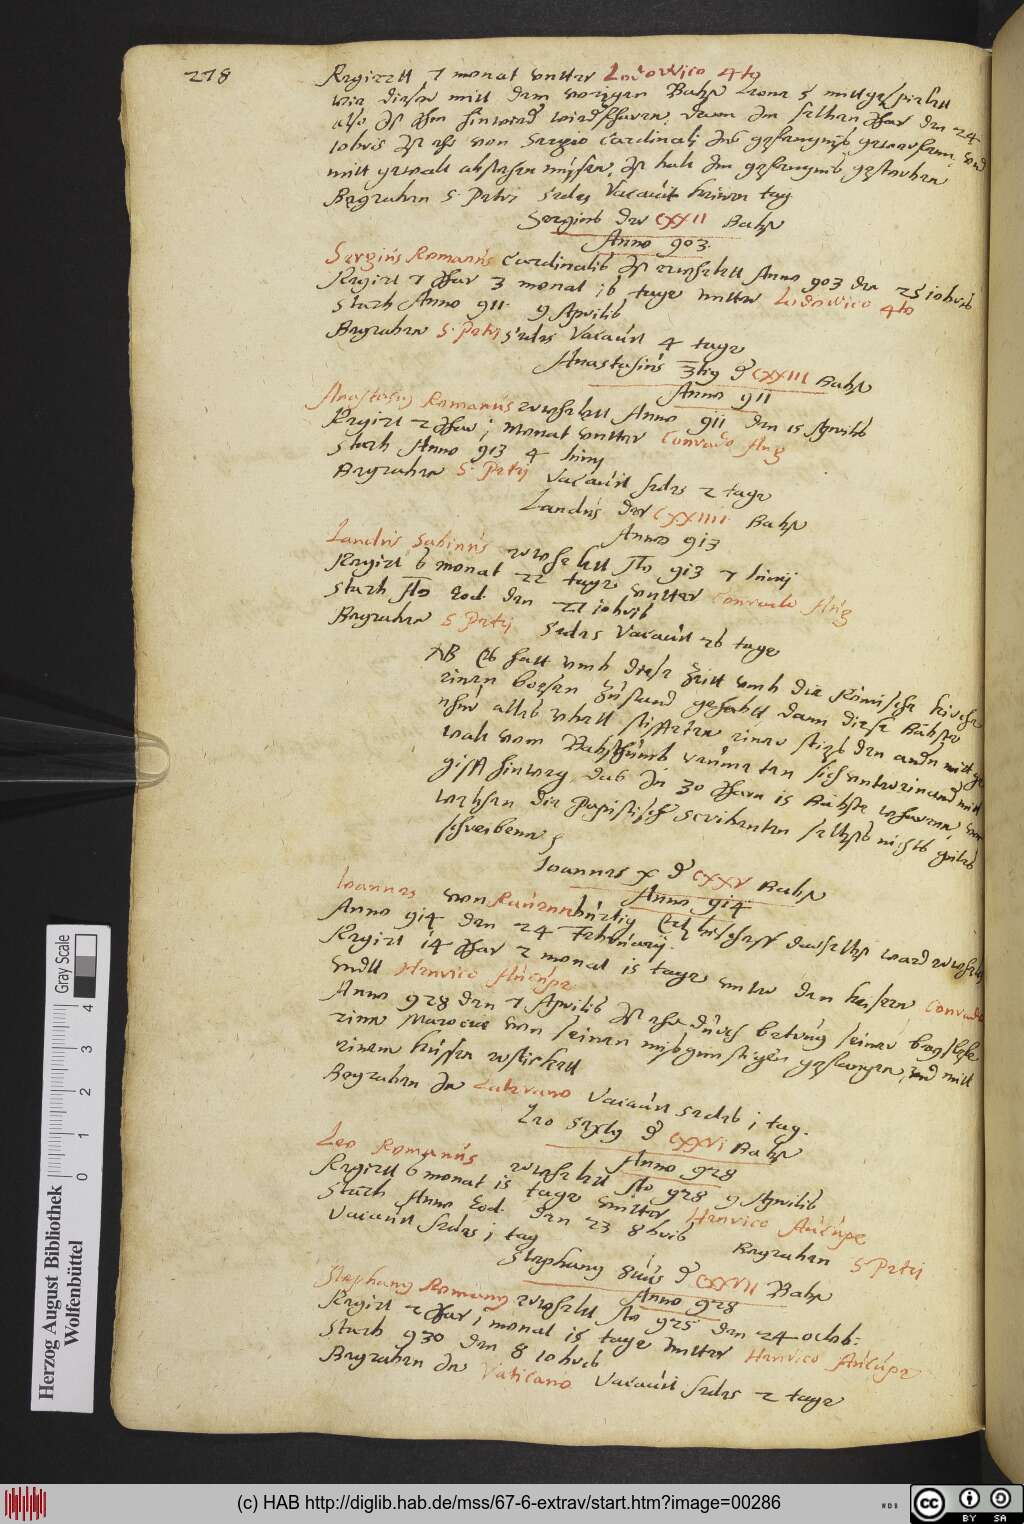 278
Regirett 7 monat untter Lodovvico 4to
wie dieser mitt dem vorigen Babst Leone 5 mittgespielett
also ist ihm hinwied widerfharen, dann Im selben Jhar den 24
10bris ist ehr von Sergio Cardinali Ins gefengnis geworfenn, und
mitt gewalt absthehen müssen, ist halt Im gefengnis gestorben
Begraben S. Petri sedes Vacavit keinen tag
Sergius der CXXII Babst
Anno 903.
Sergius Romanus Cardinalis ist erwehlett Anno 903 den 25 10bris
Regirt 7 Jhar 3 monat 16 tage untter Ludovico 4to
Starb Anno 911 9 Aprilis
Begraben S. Petri Sedes Vacavit 4 tage
Anastasius 3tig d CXXIII Babst
Anno 911
Anastasius Romanus erwehlett Anno 911 den 15 Aprilis
Regirt 2 Jhar 1 Monat untter Conrado Aug
Starb Anno 913 4 Iunij
Begraben S. Petri Vacavit sedes 2 tage
Landus der CXXIIII Babst
Anno 913
Landus Sabinus erwehlett Ao 913 7 Iunij
Regirt 6 monat 22 tage untter Conrado Aug
Starb Ao Eod. den 27 10bris
Begraben S Petri Sedes Vacavit 26 tage
NB Es hatt umb diese Zeitt umb die Römische kirche
einen boesen Zustand gehabtt dann diese Bäbste
nihn alles ubell stiffteten einer sties den andn mitt ge
walt vom Babsthumb reumeten sich untereinand mitt
gifft hinweg das In 30 Jharn 15 Bäbste wharenn, von
welchen die papistisch Scribenten selbst nichts gutes
schreibenn
Ioannes X d CXXV Babst
Anno 914
Ioannes von Ravenna bürtig Ertzbischoff daselbst ward erwehlet
Anno 914 den 24 Februarij.
Regirt 14 Jhar 2 monat 15 tage unter den keisern Conrado
undtt Henrico Aucupe
Anno 928 den 7 Aprilis ist ehr durch betrug seiner
einer Marociae von seinen misgunstigen gefangen, und mitt
einem küssen ersticket
Begraben In Laterano Vacavit sedes 1 tag.
Leo Sextg d CXXVI Babst
Anno 928
Leo Romanus erwehlett Ao 928 9 Aprilis
Regirtt 6 monat 15 tage untter Henrico Aucupe
Starb Anno Eod. den 23 8bris Begraben S Petri
Vacavit sedes 1 tag
Stephang d CXXVII Babst
Anno 928
Stephang Romang erwehlett Ao 925 den 24 octob:
Regirt 2 Jhar 1 monat 15 tage untter Henrico Aucupe
Starb 930 den 8 10bris
Begraben In Vaticano Vacavit sedes 2 tage
Herzog August Bibliothek
Wolfenbüttel
Gray Scale
0 1 2 3 4
(c) HAB http://diglib.hab.de/mss/67-6-extrav/start.htm?image=00286
WDB
cc BY SA